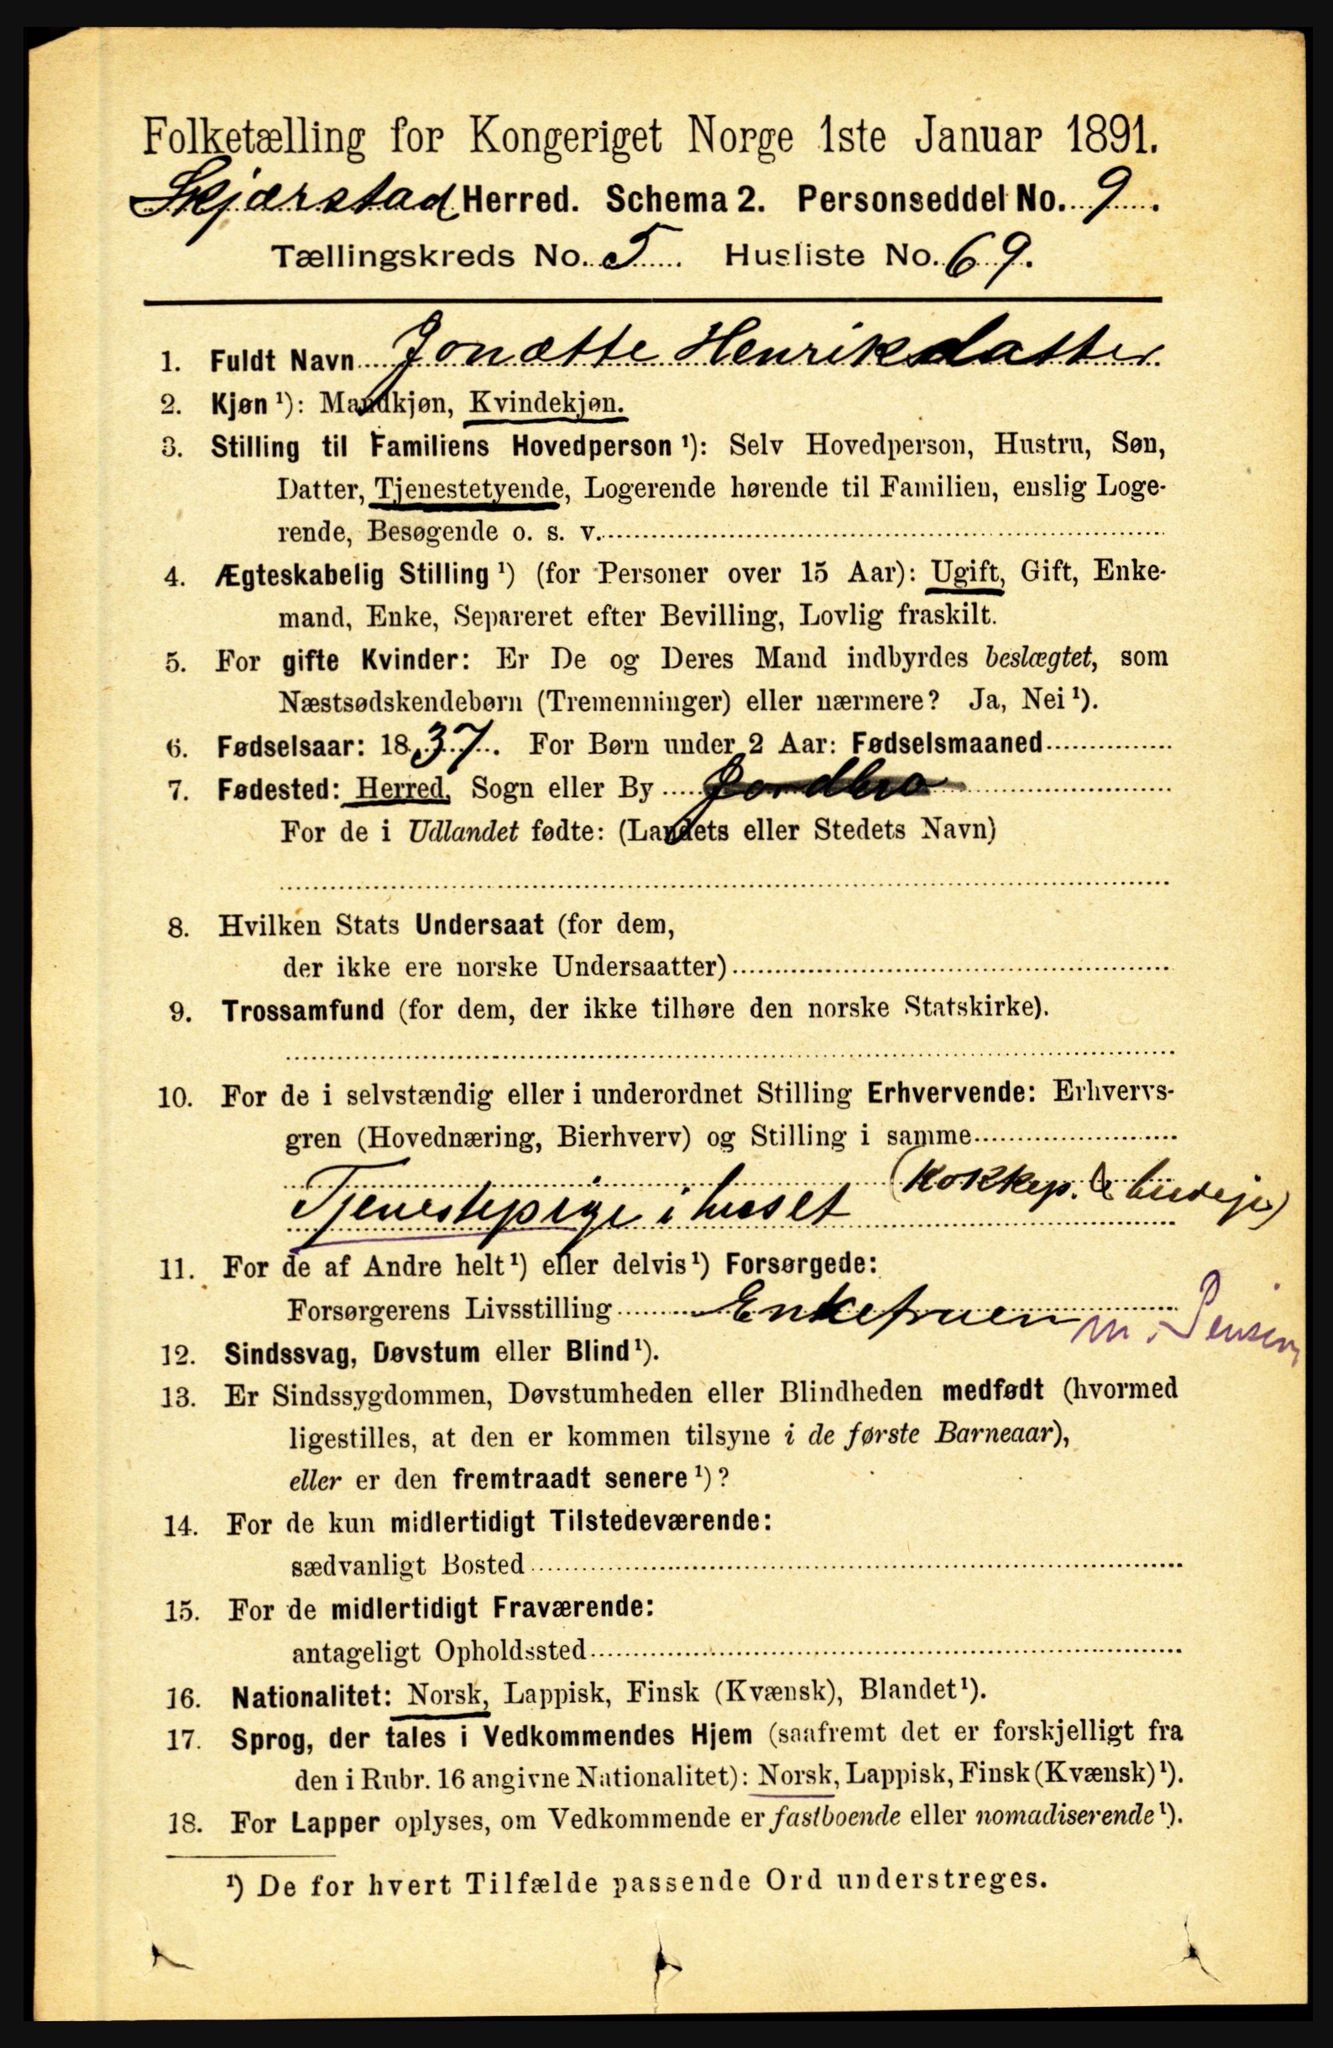 Folketælling for Kongeriget Norge 1ste Januar 1891.
Skjærstad Herred. Schema 2. Personseddel No. 9.
Tællingskreds No. 5. Husliste No. 69.
1. Fuldt Navn Jonætte Henriksdatter
2. Kjøn ¹): Mandkjøn, Kvindekjøn.
3. Stilling til Familiens Hovedperson ¹): Selv Hovedperson, Hustru, Søn,
Datter, Tjenestetyende, Logerende hørende til Familien, enslig Loge-
rende, Besøgende o. s. v.
4. Ægteskabelig Stilling ¹) (for Personer over 15 Aar): Ugift, Gift, Enke-
mand, Enke, Separeret efter Bevilling, Lovlig fraskilt.
5. For gifte Kvinder: Er De og Deres Mand indbyrdes beslægtet, som
Næstsødskendebørn (Tremenninger) eller nærmere? Ja, Nei ¹).
6. Fødselsaar: 1837. For Børn under 2 Aar: Fødselsmaaned
7. Fødested: Herred, Sogn eller By Jordbro
For de i Udlandet fødte: (Landets eller Stedets Navn)
8. Hvilken Stats Undersaat (for dem,
der ikke ere norske Undersaatter)
9. Trossamfund (for dem, der ikke tilhøre den norske Statskirke).
10. For de i selvstændig eller i underordnet Stilling Erhvervende: Erhvervs-
gren (Hovednæring, Bierhverv) og Stilling i samme
Tjenestepige i huset (Kokkep. & budeje)
11. For de af Andre helt ¹) eller delvis ¹) Forsørgede:
Forsørgerens Livsstilling Enkefruen m. Pension
12. Sindssvag, Døvstum eller Blind ¹).
13. Er Sindssygdommen, Døvstumheden eller Blindheden medfødt (hvormed
ligestilles, at den er kommen tilsyne i de første Barneaar),
eller er den fremtraadt senere ¹)?
14. For de kun midlertidigt Tilstedeværende:
sædvanligt Bosted
15. For de midlertidigt Fraværende:
antageligt Opholdssted
16. Nationalitet: Norsk, Lappisk, Finsk (Kvænsk), Blandet ¹).
17. Sprog, der tales i Vedkommendes Hjem (saafremt det er forskjelligt fra
den i Rubr. 16 angivne Nationalitet): Norsk, Lappisk, Finsk (Kvænsk) ¹).
18. For Lapper oplyses, om Vedkommende er fastboende eller nomadiserende ¹).
¹) De for hvert Tilfælde passende Ord understreges.